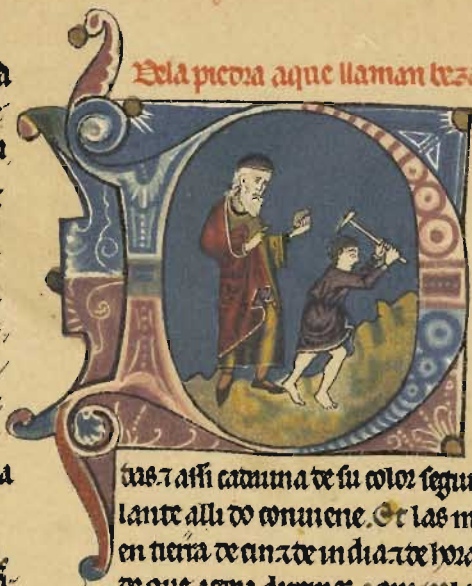 Dela piedra aque llaman beza
tras. ⁊ assi cadauna de su color segun
lante alli do conuiene. Et las m
en tierra de cin ⁊ de india ⁊ de hora